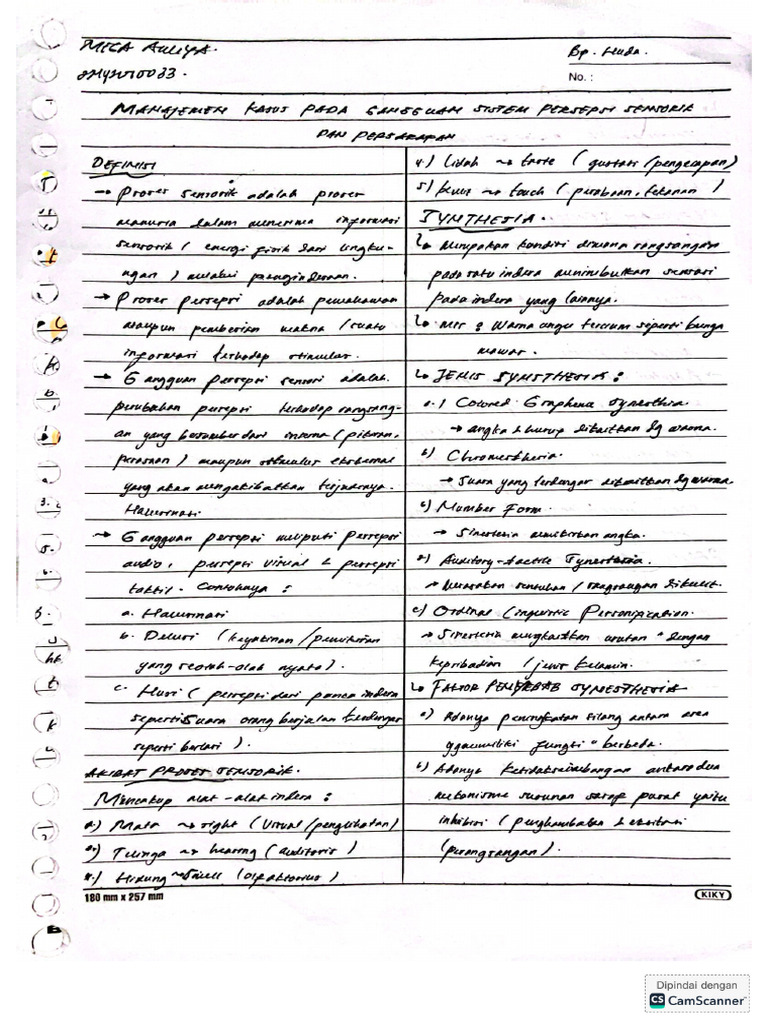 MEGA AULIYA.
Bp. Huda.
No. :
MANAJEMEN KASUS PADA GANGGUAN SISTEM PERSEPSI SENSORIK
DAN PERSARAFAN
DEFINISI
→ Proses sensorik adalah proses
manusia dalam menerima informasi
sensorik (energi fisik dari lingku-
ngan) melalui penginderaan.
→ Proses persepsi adalah pemahaman
maupun pemberian makna / suatu
informasi terhadap stimulus.
→ Gangguan persepsi sensori adalah
perubahan persepsi terhadap rangsang-
an yang bersumber dari internal (pikiran,
perasaan) maupun stimulus eksternal
yang akan mengakibatkan terjadinya
Halusinasi
→ Gangguan persepsi meliputi persepsi
audio, persepsi visual & persepsi
taktil. Contohnya :
a. Halusinasi
b. Delusi (keyakinan / pemikiran
yang seolah-olah nyata).
c. Ilusi (persepsi dari panca indera
seperti suara orang berjalan terdengar
seperti berlari).
AKIBAT PROSES SENSORIK.
Mencakup alat-alat indera :
Mata → sight (visual/penglihatan)
Telinga → hearing (auditoris)
Hidung → smell (olfaktorius)
180 mm x 257 mm
4.) Lidah → taste (gustasi/pengecapan)
5) Kulit → touch (perabaan, tekanan)
SYNTHESIA.
↳ Merupakan kondisi dimana rangsangan
pada satu indera menimbulkan sensasi
pada indera yang lainnya.
↳ Mis : Warna ungu tercium seperti bunga
mawar.
↳ JENIS SYNESTHESIA :
a.) Colored-Grapheme Synesthesia.
→ angka & huruf dikaitkan dg warna.
b) Chromesthesia.
→ Suara yang terdengar dikaitkan dg warna.
c) Number Form.
→ Sinestesia memikirkan angka.
d) Auditory-tactile Synesthesia.
→ Merasakan sentuhan / rangsangan dikulit.
e) Ordinal Linguistic Personification.
→ Sinestesia mengkaitkan urutan" dengan
kepribadian / jenis kelamin.
↳ FAKTOR PENYEBAB SYNESTHESIA
a) Adanya peningkatan silang antara area
yg memiliki fungsi" berbeda.
b) Adanya ketidakseimbangan antara dua
mekanisme susunan saraf pusat yaitu
inhibisi (penghambatan & eksitasi
(perangsangan).
KIKY
Dipindai dengan
CS CamScanner